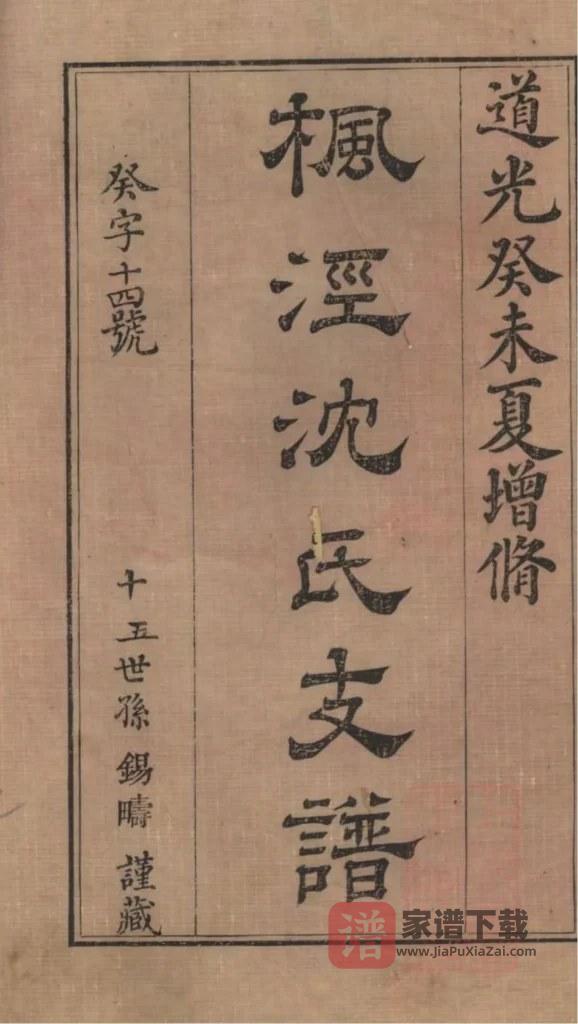 道光癸未夏增脩
楓涇沈氏支譜
癸字十四號
十五世孫錫疇謹藏
谱 家谱下载
www.JiaPuXiaZai.com